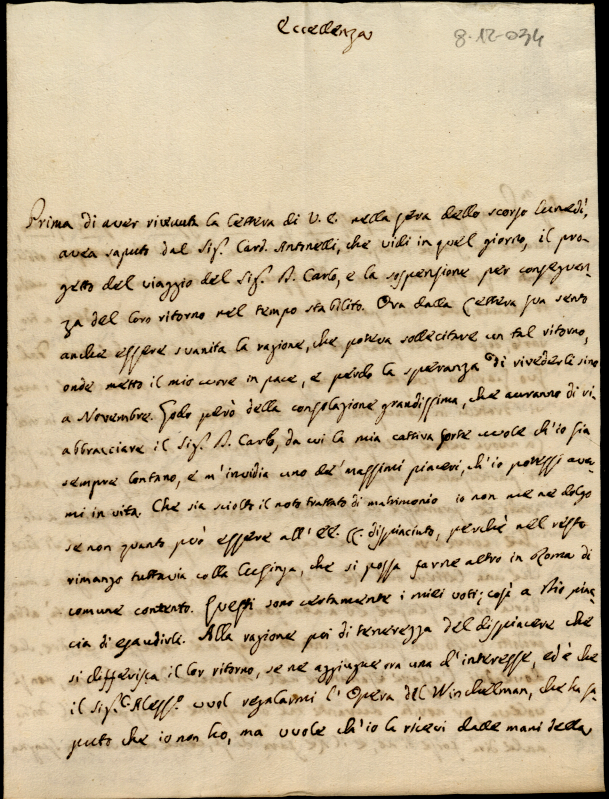 Eccellenza
8-12-034
Prima di aver ricevuta la lettera di V. E. nella sera dello scorso lunedì,
avea saputo dal Sig.r Card. Antinelli, che vidi in quel giorno, il pro-
getto del viaggio del Sig.r D. Carlo, e la sospensione per conseguen-
za del loro ritorno nel tempo stabilito. Ora dalla lettera sua sento
anche essere svanita la ragione, che poteva sollecitare un tal ritorno,
onde metto il mio cuore in pace, e perdo la speranza di rivederle sino
a Novembre. Godo però della consolazione grandissima, che avranno di ri-
abbracciare il Sig.r D. Carlo, da cui la mia cattiva sorte vuole ch'io sia
sempre lontano, e m'invidia uno de' massimi piaceri, ch'io potessi aver-
mi in vita. Che sia sciolto il noto trattato di matrimonio io non me ne dolgo
se non quanto può essere all' EE. LL. dispiaciuto, perchè nel resto
rimango tuttavia colla lusinga, che si possa farne altro in Roma di
comune contento. Questi sono certamente i miei voti; così a Dio piac-
cia di esaudirli. Alla ragione poi di tenerezza del dispiacere che
si differisca il lor ritorno, se ne aggiugne ora una d'interesse, ed è che
il Sig.r Aless.o vuol regalarmi l'Opera del Winckelman, che ha sa-
puto che io non ho, ma vuole ch'io la riceva dalle mani della